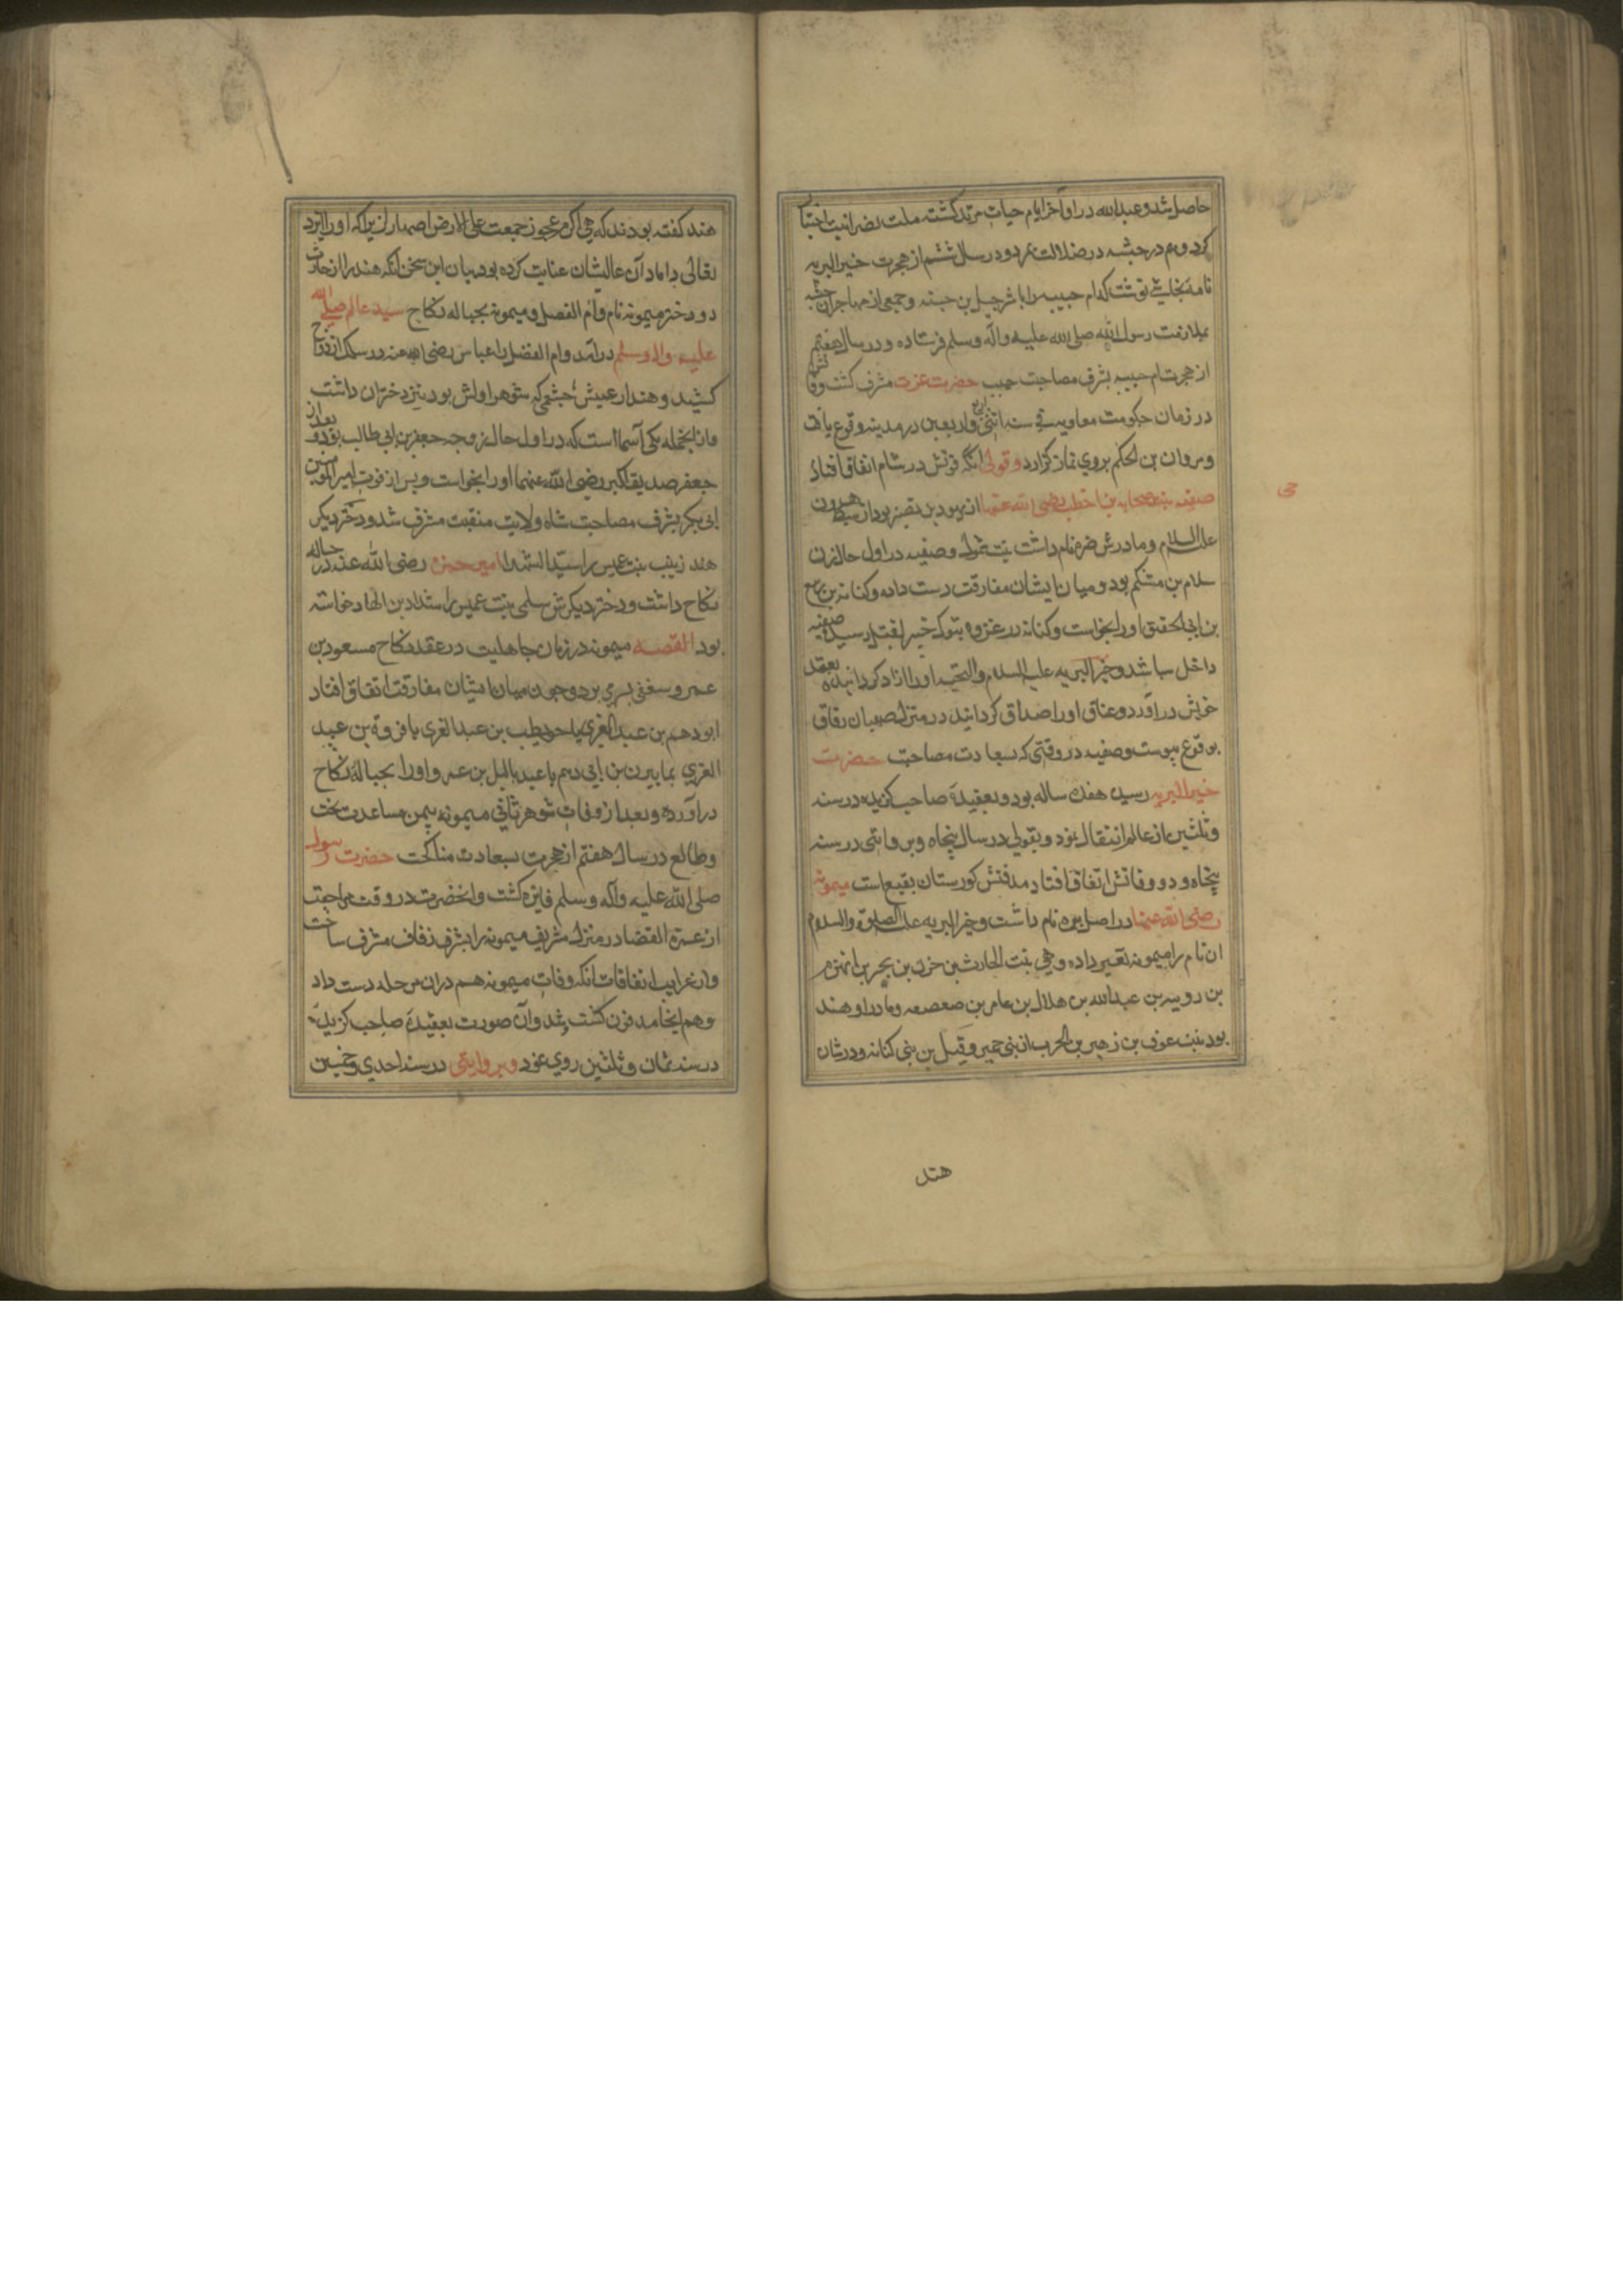 حاصل شد و عبدالله در اواخر ایام حیات مرتد کشته ملت نصرانیت اختیار
کرد و هم در حبشه در ضلالت بمرد و در سال ششم از هجرت خیر البریه
نامه بنجاشی نوشت که ام حبیبه را با شرحبیل بن حسنه و جمعی از مهاجران حبشه
بملازمت رسول الله صلی الله علیه وآله وسلم فرستاده و در سال هفتم
از هجرت ام حبیبه بشرف مصاحبت حبیب حضرت عزت مشرف کشت و وفاتش
در زمان حکومت معاویه فی سنه اثنی واربعین در مدینه وقوع یافت
ومروان بن الحکم بروی نماز کزارد وقولی آنکه فوتش در شام اتفاق افتاد
صفیه بنت حی بن اخطب رضی الله عنها از یهود بنی نضیر بود از سبط هرون
علیه السلام ومادرش ضره نام داشت بنت سموال وصفیه در اول حال زن
سلام بن مشکم بود ومیان ایشان مفارقت دست داده وکنانه بن ربیع
بن ابی الحقیق اورا بخواست وکنانه در غزوه خیبر بقتل رسید صفیه
داخل سبایا شد و خیر البریه علیه السلام والتحیه اورا آزاد کردانیده بعقد
خویش درآورد و عتاق اورا صداق کردانید در منزل صهبا زفاف
بوقوع پیوست وصفیه در وقتی که بسعادت مصاحبت حضرت
خیر البریه رسید هفده ساله بود وبعقیدۀ صاحب کزیده در سنه
وثلثین از عالم انتقال نمود وبقولی در سال پنجاه وبروایتی در سنه
پنجاه و دو وفاتش اتفاق افتاد مدفنش کورستان بقیع است میمونه
رضی الله عنها در اصل بره نام داشت وخیر البریه علیه الصلوة والسلام
ان نام را بمیمونه تغییر داده وهی بنت الحارث بن حزن بن بجیر بن الهزم
بن رویبه بن عبدالله بن هلال بن عامر بن صعصعه ومادر او هند
بود بنت عوف بن زهیر بن الحرب از بنی حمیر وقیل من بنی کنانه ودر شان
هند
هند کفته بودند که هی اکرم عجوز جمعت علی الارض اصهارا زیرا که اورا ایزد
تعالی داماد آن عالیشان عنایت کرده بود بیان این سخن آنکه هند را از حارث
دو دختر میمونه نام وام الفضل ومیمونه بحباله نکاح سید عالم صلی الله
علیه واله وسلم درآمد وام الفضل را عباس رضی الله عنه در سلک ازدواج
کشید وهند از عمیس خثعمی که شوهر اولش بود نیز دختران داشت
وازانجمله یکی اسما است که در اول حال زوجه جعفر بن ابی طالب بود وبعد از
جعفر صدیق اکبر رضی الله عنهما اورا بخواست وپس از فوت امیر المومنین
ابی بکر بشرف مصاحبت شاه ولایت منقبت مشرف شد ودختر دیکر
هند زینب بنت عمیس را سید الشهدا امیر حمزه رضی الله عنه در حباله
نکاح داشت ودختر دیکرش سلمی بنت عمیس را شداد بن الهاد خواسته
بود القصه میمونه در زمان جاهلیت در عقد نکاح مسعود بن
عمرو ثقفی بسر می برد وچون میان ایشان مفارقت اتفاق افتاد
ابو رهم بن عبد العزی یا حویطب بن عبد العزی یا فروة بن عبد
العزی بن ابی رهم یا عبد یالیل بن عمرو اورا بحبالۀ نکاح
درآورده وبعد از وفات شوهر ثانی میمونه بیمن مساعدت بخت
وطالع در سال هفتم از هجرت بسعادت مناکحت حضرت رسول
صلی الله علیه وآله وسلم فایزه کشت وانحضرت در وقت مراجعت
از عمرة القضا در منزل شریف میمونه را بشرف زفاف مشرف ساخت
واز غرایب اتفاقات انکه وفات میمونه هم دران مرحله دست داد
وهم انجا مدفون کشت وآن صورت بعقیدۀ صاحب کزیده
در سنه ثمان وثلثین روی نمود وبروایتی در سنه احدی وخمسین